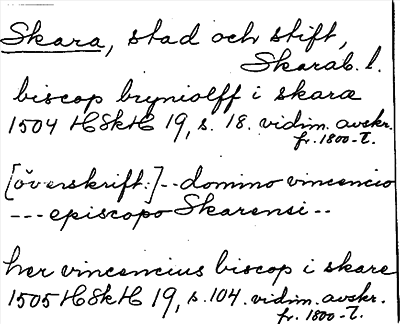 Skara, stad och stift,
Skarab. l.
biscop bryniolff i skaræ
1504 HSkH 19, s. 18. vidim. avskr.
fr. 1800-t.
[överskrift:] -- domino vincencio
--- episcopo Skarensi --
her vincencius biscop i skare
1505 HSkH 19, s. 104. vidim. avskr.
fr. 1800-t.